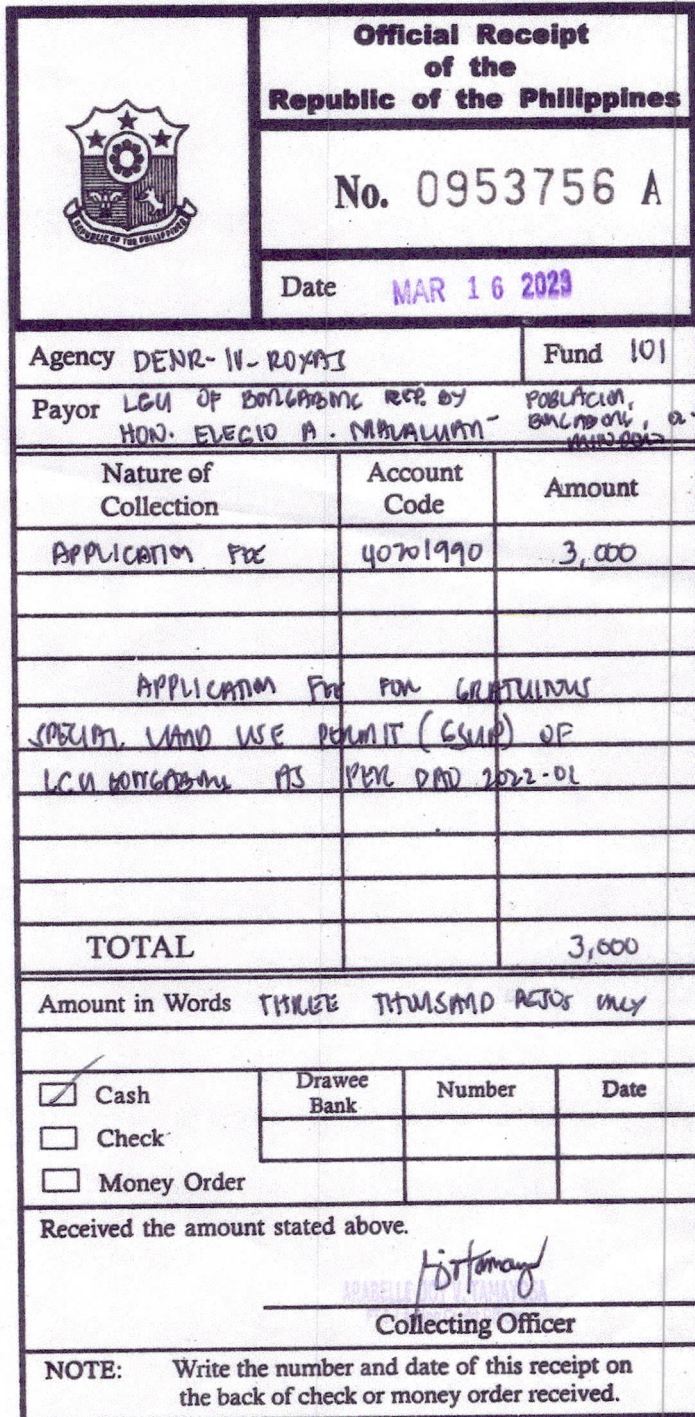 Official Receipt
of the
Republic of the Philippines
REPUBLIC OF THE PHILIPPINES
No. 0953756 A
Date MAR 16 2023
Agency DENR-IV-ROXAS Fund 101
Payor LGU OF BONGABONG REP. BY POBLACION,
HON. ELEGIO A. MALALUAN BONGABONG, O.
MINDORO
Nature of Collection Account Code Amount
APPLICATION FEE 40201990 3,000
APPLICATION FEE FOR GRATUITOUS
SPECIAL LAND USE PERMIT (GSUP) OF
LGU BONGABONG AS PER DAO 2022-
TOTAL 3,000
Amount in Words THREE THOUSAND PESOS ONLY
Cash Drawee Bank Number Date
Check
Money Order
Received the amount stated above.
ARABELLE JOY V. TAMAYOSA
Collecting Officer
NOTE: Write the number and date of this receipt on
the back of check or money order received.